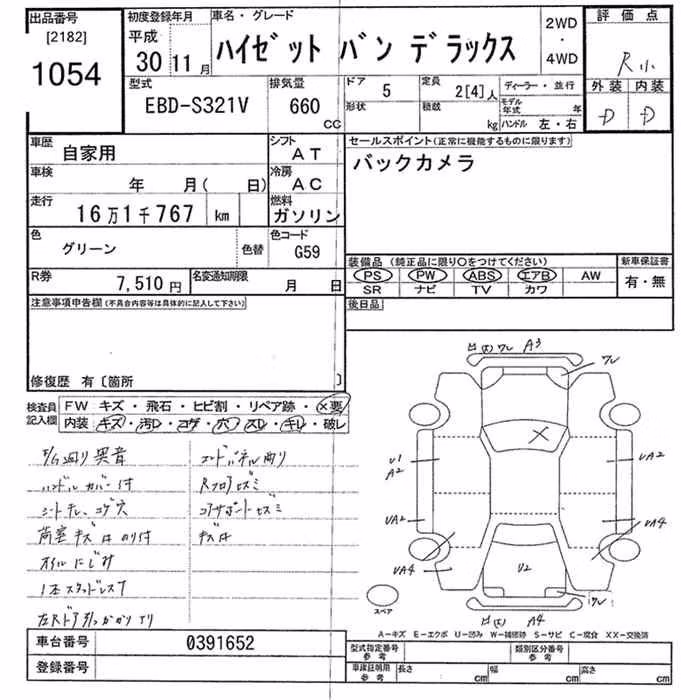 出品番号
[2182]
1054
初度登録年月
平成
30 11月
車名・グレード
ハイゼット バン デラックス
2WD
・
4WD
評価点
R小
外装 内装
D D
型式
EBD-S321V
排気量
660
CC
ドア 5
形状
定員 2[4]人
積載 kg
ディーラー・並行
モデル年式 年
ハンドル 左・右
車歴 自家用
シフト AT
車検 年 月( 日)
冷房 AC
走行 16万1千767 km
燃料 ガソリン
色 グリーン
色替
色コード G59
R券 7,510円
名変通知期限 月 日
セールスポイント(正常に機能するものに限ります)
バックカメラ
装備品(純正品に限り○をつけてください)
PS PW ABS エアB AW
SR ナビ TV カワ
新車保証書
有・無
後日品
注意事項申告欄(不具合内容等は具体的に記入して下さい)
修復歴 有〔箇所 〕
検査員記入欄
FW キズ・飛石・ヒビ割・リペア跡・×要
内装 キズ・汚レ・コゲ・穴・スレ・キレ・破レ
異音
ハンドルカバー付
コゲ穴
荷室キズ
オイルにじみ
左Rドア引っかかり
Rフロア
キズ
A3
ワレ
U1
A2
UA2
UA2
UA4
UA4
U2
A4
スペア
A-キズ E-エクボ U-凹み W-補修跡 S-サビ C-腐食 XX-交換済
車台番号 0391652
登録番号
型式指定番号
参考
類別区分番号
参考
車庫証明用
参考
長さ cm
幅 cm
高さ cm